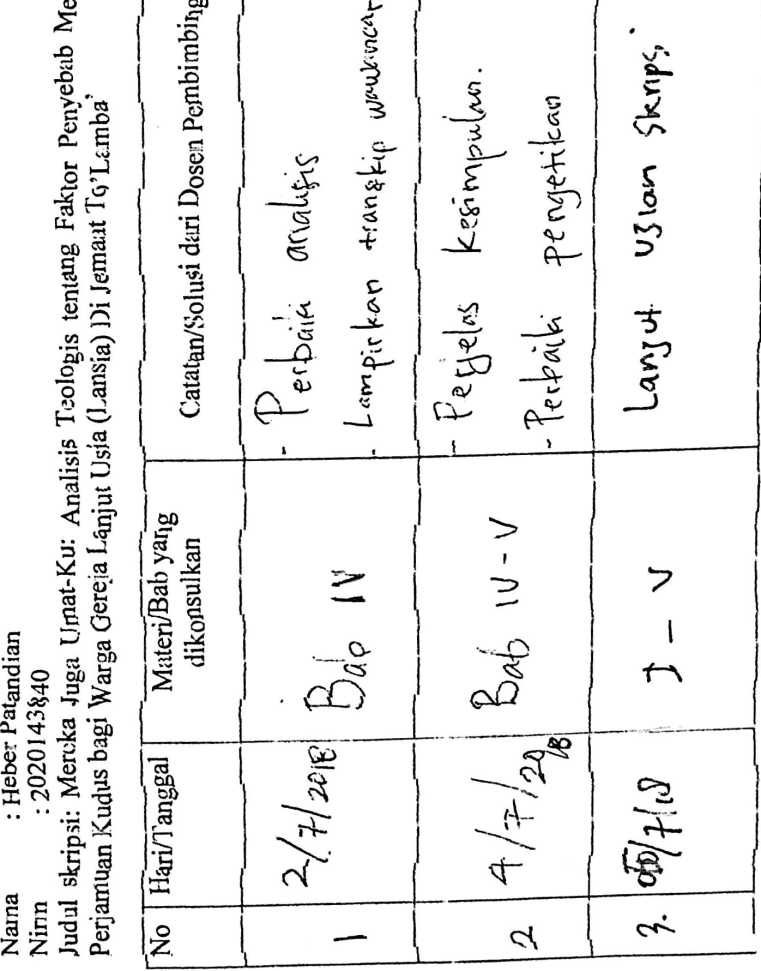 Nama : Heber Patandian
Nirm : 2020143840
Judul skripsi: Mereka Juga Umat-Ku: Analisis Teologis tentang Faktor Penyebab Me
Perjamuan Kudus bagi Warga Gereja Lanjut Usia (Lansia) Di Jemaat To'Lamba'
No Hari/Tanggal Materi/Bab yang dikonsulkan Catatan/Solusi dari Dosen Pembimbing
1 2/7/2018 Bab IV - Perbaiki analisis
- Lampirkan transkip wawancar
2 4/7/2018 Bab IV - V - Perjelas kesimpulan.
- Perbaiki pengetikan
3. /7/18 I - V Lanjut Ujian Skripsi